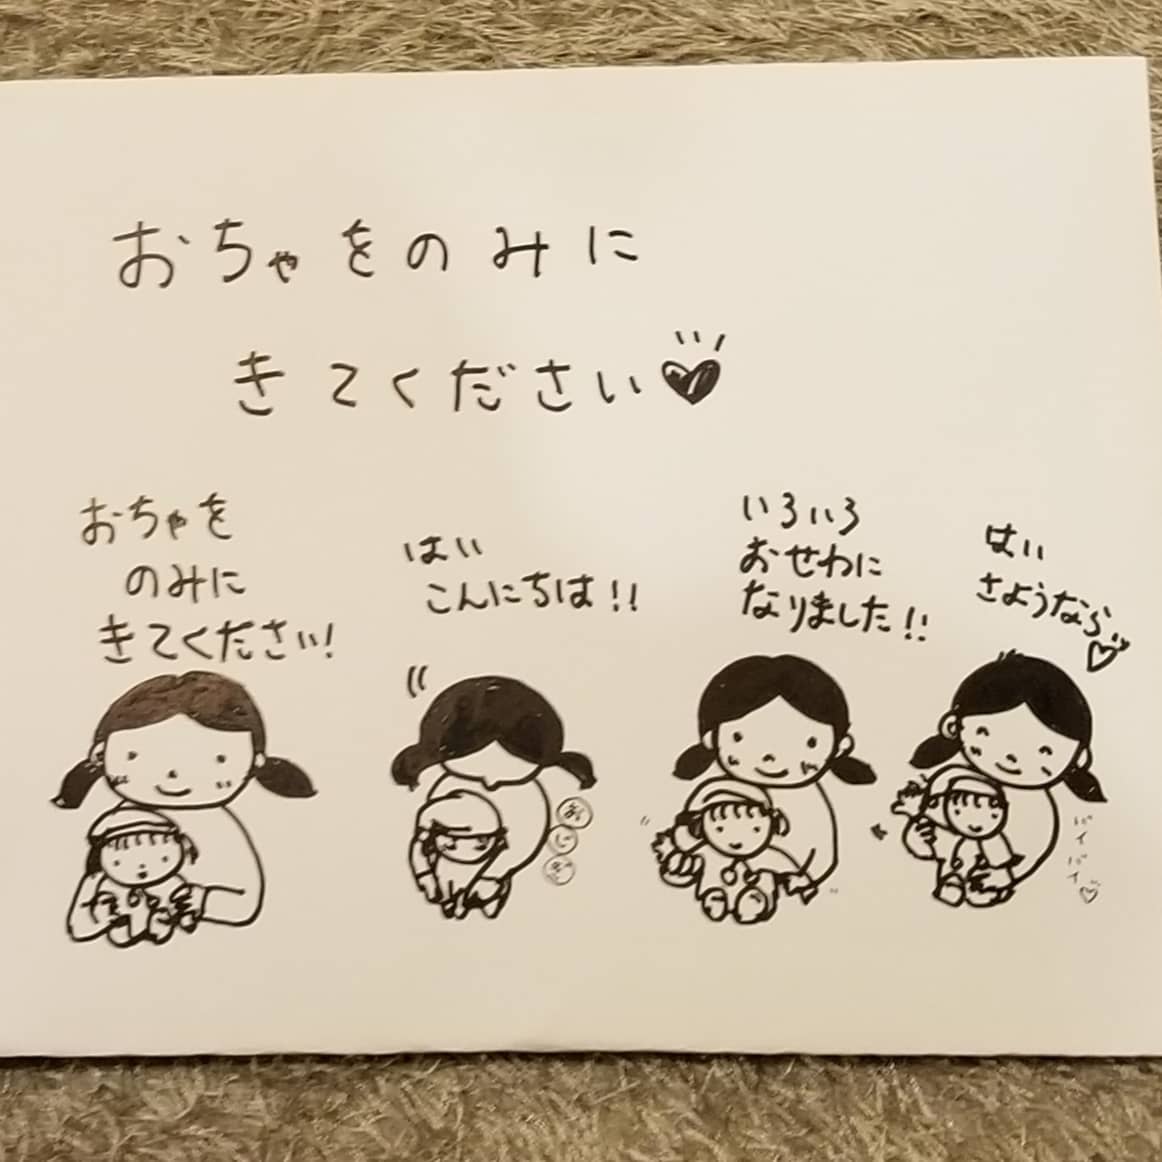 おちゃをのみに
きてください
おちゃを
のみに
きてください!
はい
こんにちは!!
おじぎ
いろいろ
おせわに
なりました!!
はい
さようなら
バイバイ